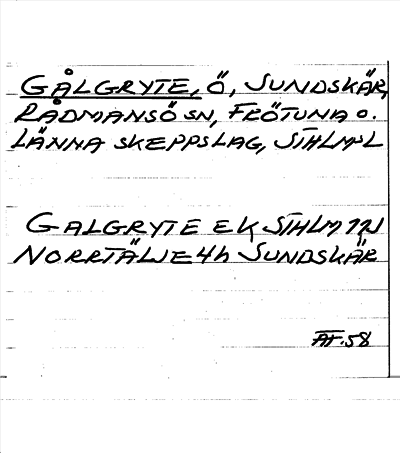 GÅLGRYTE, Ö, SUNDSKÄR,
RÅDMANSÖ SN, FRÖTUNA O.
LÄNNA SKEPPSLAG, STHLMSL
GALGRYTE EK STHLM 1N
NORRTÄLJE 4h SUNDSKÄR
AF.58